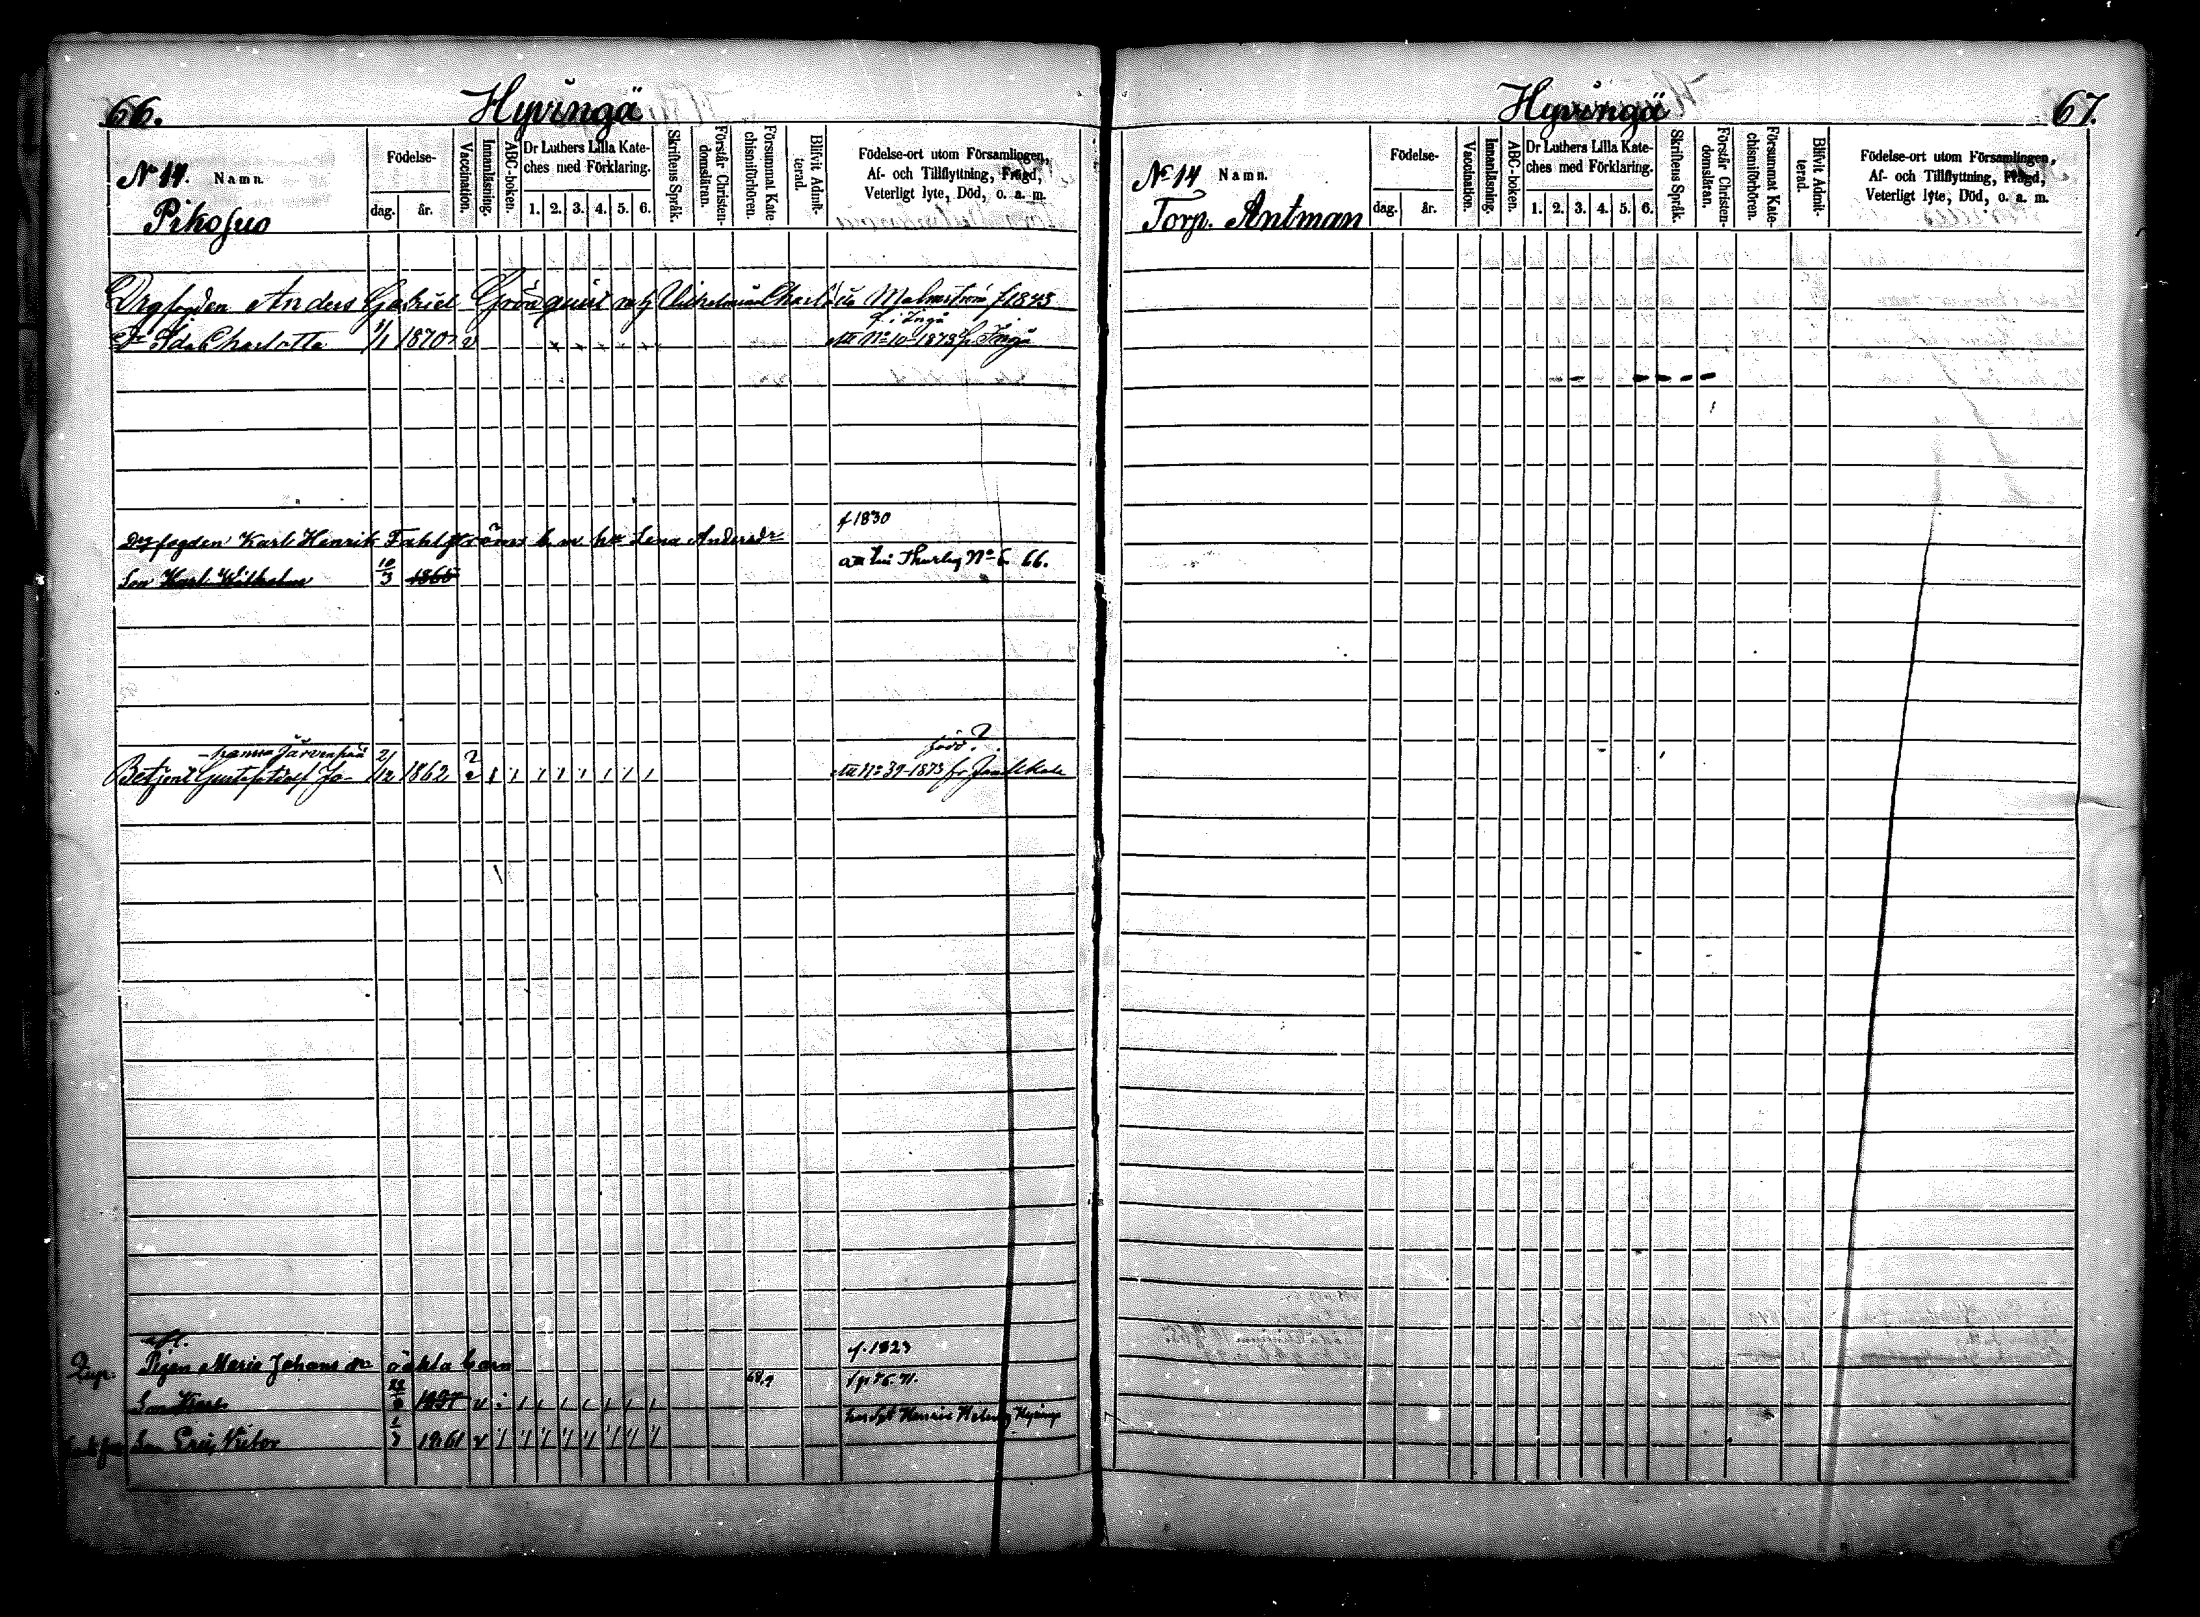 66.
Hyvingä
No 14.
Namn.
Pikosuo
Födelse-
dag. år.
Vaccination.
Innanläsning.
ABC-boken.
Dr Luthers Lilla Kate-
ches med Förklaring.
1. 2. 3. 4. 5. 6.
Skriftens Språk.
Förstår Christen-
domsläran.
Försummat Kate-
chismiförhören.
Blifvit Admit-
terad.
Födelse-ort utom Församlingen,
Af- och Tillflyttning, Frägd,
Veterligt lyte, Död, o. a. m.
Drgfogden Anders Gabriel Grönquist Vilhelmina Charlotta Malmström f 1843
f. i Ingå
Dr Ida Charlotta 1/1 1870 v No 10-1873 fr Ingå
f 1830
Drgfogden Karl Henrik Fahlströms b m h Lena Andersdr
Son Karl Wilhelm 10/3 1865 Thusby No 6 66.
Hanna Järvenpää född?
Betjent 2/12 1862 ? No 39-1873 fr
Pigan Maria Johansdr oäkta barn f. 1823
68,9
Son Karl 1857 v
Son Eric Victor 1/3 1861 v
67.
Hyvingä
No 14
Namn.
Torp. Antman
Födelse-
dag. år.
Vaccination.
Innanläsning.
ABC-boken.
Dr Luthers Lilla Kate-
ches med Förklaring.
1. 2. 3. 4. 5. 6.
Skriftens Språk.
Förstår Christen-
domsläran.
Försummat Kate-
chismiförhören.
Blifvit Admit-
terad.
Födelse-ort utom Församlingen,
Af- och Tillflyttning, Frägd,
Veterligt lyte, Död, o. a. m.